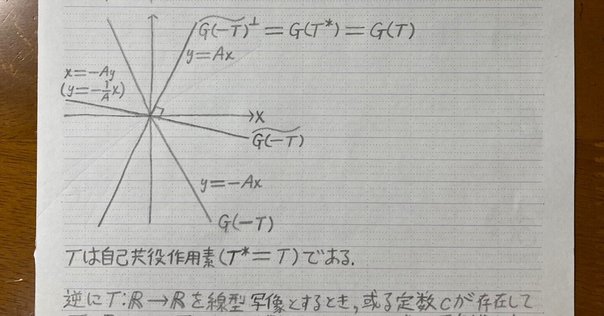 G(-T)^⊥ = G(T*) = G(T)
y=Ax
x=-Ay
(y=-1/A x)
x
G(-T)
y=-Ax
G(-T)
Tは自己共役作用素(T*=T)である.
逆にT:ℝ→ℝを線型写像とするとき,或る定数Cが存在して